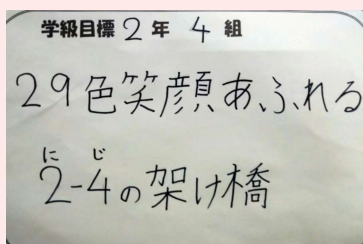 学級目標 2年 4組
29色笑顔あふれる
にじ
2-4の架け橋